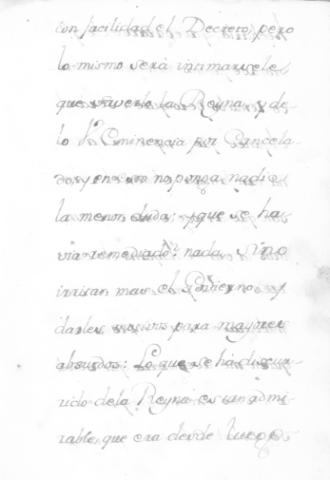 con facilidad el Decreto, pero
lo mismo será intimarsele
que verlo la Reyna, y de
lo Eminencia por Cancela
no ponga nadie
la menor duda; que se ha
via remediado nada, sino
irritar mas el Govierno y
darles para mayores
absurdos: Lo que se ha discur
rido de la Reyna es tan admi
rable, que era desde luego